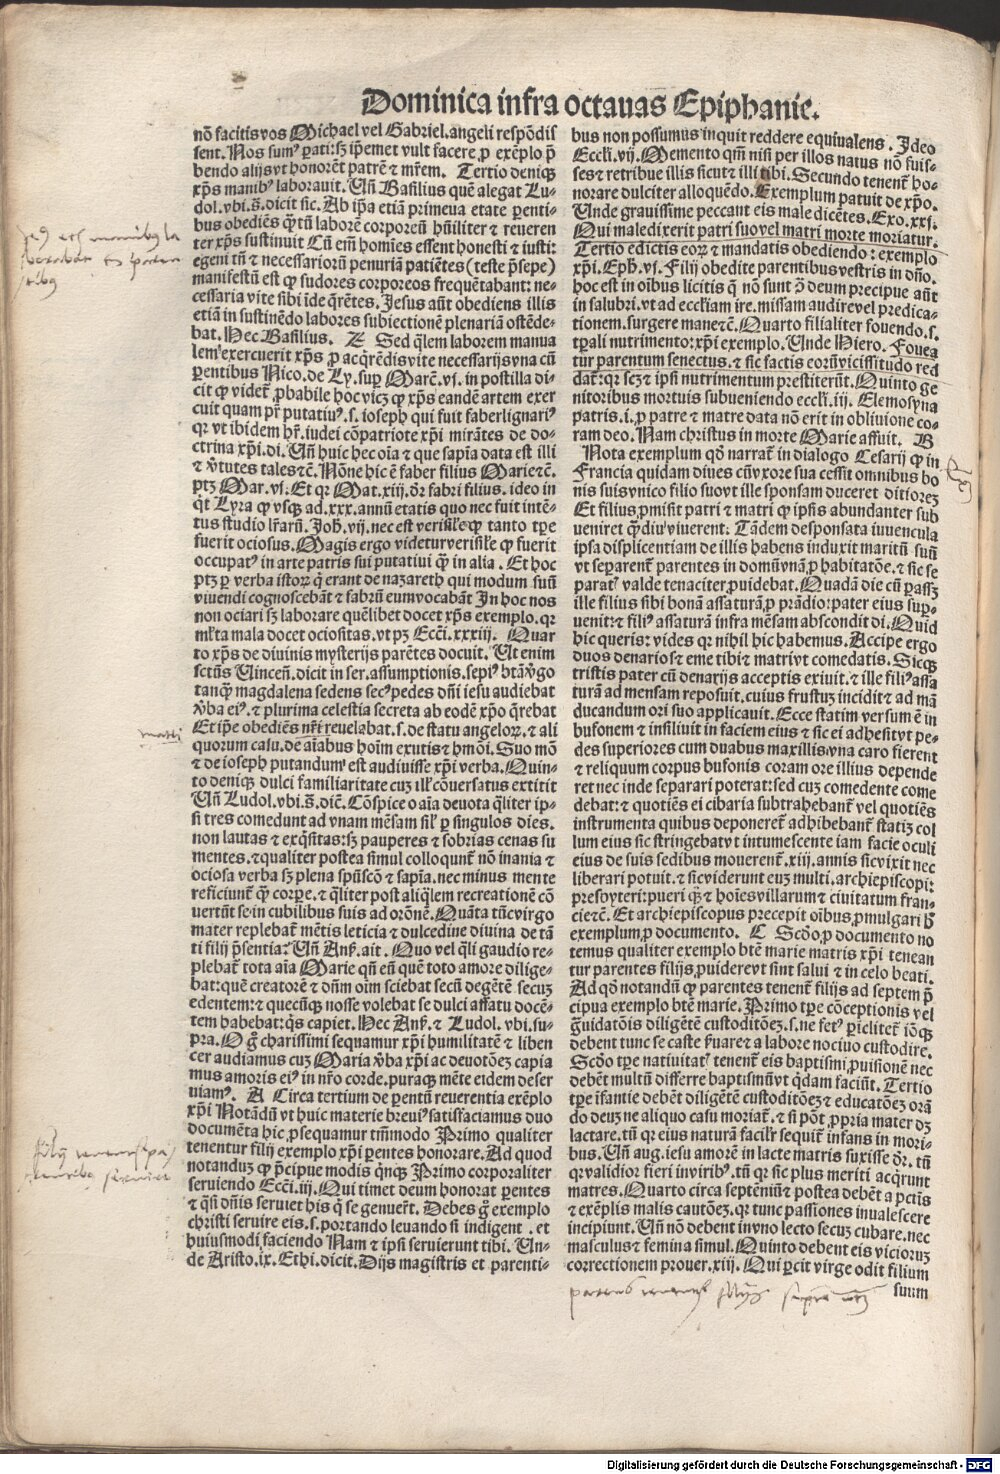 Dominica infra octauas Epiphanie.
nō facitis vos Michael vel Gabriel. angeli respōdis
sent. Nos sumꝰ ꝑati: sꝫ ip̄emet vult facere ꝓ exēplo p̄
bendo alijs vt honorēt patrē ⁊ mr̄em. Tertio deniqꝫ
xp̄s manibꝰ laborauit. Vn̄ Basilius quē alegat Lu-
dol. vbi. s̄. dicit sic. Ab ip̄a etiā primeua etate ꝑenti-
bus obediēs q̄ꝫtū laborē corporeū hūiliter ⁊ reueren
ter xp̄s sustinuit Cū em̄ homīes essent honesti ⁊ iusti:
egeni tn̄ ⁊ necessariorū penuriā patiētes (teste p̄sepe)
manifestū est ꝙ sudores corporeos frequētabant: ne-
cessaria vite sibi īde q̄rētes. Jesus aūt obediens illis
etiā in sustinēdo labores subiectionē plenariā ostēde-
bat. Hec Basilius. Z Sed q̄lem laborem manua
lem exercuerit xp̄s ꝓ acq̄rēdis vite necessarijs vna cū
ꝑentibus Nico. de Ly. suꝑ Marc̄. vi. in postilla di-
cit ꝙ videt᷑ ꝓbabile hoc vicꝫ ꝙ xp̄s eandē artem exer
cuit quam pr̄ putatiuꝰ. s. ioseph qui fuit faber lignariꝰ
qꝛ vt ibidem hr̄. iudei cōpatriote xp̄i mirātes de do-
ctrina xp̄i. di. Vn̄ huic hec oīa ⁊ que sapīa data est illi
⁊ v̄tutes tales ⁊c̄. Nōne hic ē faber filius Marie ⁊c̄.
ptꝫ Mar. vi. Et qꝛ Mat. xiij. dr̄ fabri filius. ideo in
q̄t Lyra ꝙ vsqꝫ ad. xxx. annū etatis quo nec fuit intē-
tus studio lr̄arū. Joh̄. vij. nec est verisil̄e ꝙ tanto tꝑe
fuerit ociosus. Magis ergo videtur verisil̄e ꝙ fuerit
occupatꝰ in arte patris sui putatiui q̄ꝫ in alia. Et hoc
ptꝫ ꝑ verba istoꝝ q̄ erant de nazareth qui modum suū
viuendi cognoscebāt ⁊ fabrū eum vocabāt In hoc nos
non ociari sꝫ laborare quēlibet docet xp̄s exemplo. qꝛ
ml̄ta mala docet ociositas. vt pꝫ Ecci. xxxiij. Quar
to xp̄s de diuinis mysterijs parētes docuit. Vt enim
sctūs Vincen̄. dicit in ser. assumptionis. sepiꝰ btā v̄go
tanq̄ꝫ magdalena sedens secꝰ pedes dn̄i iesu audiebat
v̄ba eiꝰ. ⁊ plurima celestia secreta ab eodē xp̄o q̄rebat
Et ip̄e obediēs mr̄i reuelabat. s. de statu angeloꝝ. ⁊ ali
quorum casu. de aīabus hoīm exutis ⁊ hmōi. Suo mō
⁊ de ioseph putandum est audiuisse xp̄i verba. Quin-
to deniqꝫ dulci familiaritate cuꝫ ill̄ cōuersatus extitit
Vn̄ Ludol. vbi. s̄. dic̄. Cōspice o aīa deuota q̄liter ip-
si tres comedunt ad vnam mēsam sil̄ ꝑ singulos dies.
non lautas ⁊ exq̄sitas: sꝫ pauperes ⁊ sobrias cenas su
mentes. ⁊ qualiter postea simul colloqunt᷑ nō inania ⁊
ociosa verba sꝫ plena spūscō ⁊ sapīa. nec minus mente
reficiunt᷑ q̄ꝫ corꝑe. ⁊ q̄liter post aliq̄lem recreationē cō
uertūt se in cubilibus suis ad orōnē. Quāta tūc virgo
mater replebat᷑ mētis leticia ⁊ dulcedine diuina de tā
ti filij p̄sentia: Vn̄ Ans̄. ait. Quo vel q̄li gaudio re-
plebat᷑ tota aīa Marie qn̄ eū quē toto amore dilige-
bat: quē creatorē ⁊ dn̄m oīm sciebat secū degētē secuꝫ
edentem: ⁊ quecūqꝫ nosse volebat se dulci affatu docē-
tem habebat: q̄s capiet. Hec Ans̄. ⁊ Ludol. vbi. su-
pra. O g̊ charissimi sequamur xp̄i humilitatē ⁊ liben
cer audiamus cuꝫ Maria v̄ba xp̄i ac deuotōeꝫ capia
mus amoris eiꝰ in nr̄o corde. puraqꝫ mēte eidem deser
uiamꝰ. A Circa tertium de ꝑentū reuerentia exēplo
xp̄i Notādū vt huic materie breuiꝰ satisfaciamus duo
documēta hic ꝓsequamur tm̄modo Primo qualiter
tenentur filij exemplo xp̄i ꝑentes honorare. Ad quod
notanduꝫ ꝙ p̄cipue modis q̄nqꝫ Primo corporaliter
seruiendo Ecci. iij. Qui timet deum honorat ꝑentes
⁊ q̄si dn̄is seruiet his q̄ se genuer̄t. Debes g̊ exemplo
christi seruire eis. s. portando leuando si indigent. et
huiusmodi faciendo Nam ⁊ ipsi seruierunt tibi. Vn-
de Aristo. ix. Ethi. dicit. Dijs magistris et parenti-
bus non possumus inquit reddere equivalens. Ideo
Eccl̄i. vij. Memento qm̄ nisi per illos natus nō fuis-
ses ⁊ retribue illis sicut ⁊ illi tibi. Secundo tenent᷑ ho-
norare dulciter alloquēdo. Exemplum patuit de xp̄o.
Vnde grauissime peccant eis male dicētes. Exo. xxi.
Qui maledixerit patri suo vel matri morte moriatur.
Tertio edictis eoꝝ ⁊ mandatis obediendo: exemplo
xp̄i. Eph̄. vi. Filij obedite parentibus vestris in dn̄o.
hoc est in oībus licitis q̄ nō sunt ꝯ̄ deum precipue aūt
in salubri. vt ad eccl̄iam ire. missam audire vel predica-
tionem. surgere mane ⁊c̄. Quarto filialiter fouendo. s.
tꝑali nutrimento: xp̄i exemplo. Vnde Hiero. Fouea
tur parentum senectus. ⁊ sic factis eorū vicissitudo red
dat᷑: qꝛ scꝫ ⁊ ipsi nutrimentum prestiterūt. Quinto ge
nitoribus mortuis subueniendo eccl̄i. iij. Elemosyna
patris. i. ꝓ patre ⁊ matre data nō erit in obliuione co-
ram deo. Nam christus in morte Marie affuit. B
Nota exemplum qd̄ narrat᷑ in dialogo Cesarij ꝙ in
Francia quidam diues cū vxore sua cessit omnibus bo
nis suis vnico filio suo vt ille sponsam duceret ditiorez
Et filius ꝓmisit patri ⁊ matri ꝙ ipsis abundanter sub
ueniret q̄ꝫdiu viuerent: Tādem desponsata iuuencula
ipsa displicentiam de illis habens induxit maritū suū
vt seꝑarent᷑ parentes in domū vnā ꝓ habitatōe. ⁊ sic se
paratꝰ valde tenaciter ꝓuidebat. Quadā die cū ꝑassꝫ
ille filius sibi bonā assaturā ꝓ prādio: pater eius suꝑ-
uenit: ⁊ filiꝰ assaturā infra mēsam abscondit di. Quid
hic queris: vides qꝛ nihil hic habemus. Accipe ergo
duos denarios ⁊ eme tibi ⁊ matri vt comedatis. Sicqꝫ
tristis pater cū denarijs acceptis exiuit. ⁊ ille filiꝰ assa
turā ad mensam reposuit. cuius frustuꝫ incidit ⁊ ad mā
ducandum ori suo applicauit. Ecce statim versum ē in
bufonem ⁊ insiliuit in faciem eius ⁊ sic ei adhesit vt pe-
des superiores cum duabus maxillis vna caro fierent
⁊ reliquum corpus bufonis coram ore illius depende
ret nec inde separari poterat: sed cuꝫ comedente come
debat: ⁊ quotiēs ei cibaria subtrahebant᷑ vel quotiēs
instrumenta quibus deponeret᷑ adhibebant᷑ statiꝫ col
lum eius sic stringebat vt intumescente iam facie oculi
eius de suis sedibus mouerent᷑. xiij. annis sic vixit nec
liberari potuit. ⁊ sic viderunt eum multi. archiepiscopi:
presbyteri: pueri qꝫ ⁊ hoīes villarum ⁊ ciuitatum fran-
cie ⁊c̄. Et archiepiscopus precepit oībus ꝓmulgari h̄
exemplum ꝓ documento. C Scd̄o ꝓ documento no
temus qualiter exemplo bt̄e marie matris xp̄i tenean
tur parentes filijs ꝓuidere vt sint salui ⁊ in celo beati.
Ad qd̄ notandū ꝙ parentes tenent᷑ filijs ad septem p̄
cipua exemplo bt̄e marie. Primo tꝑe cōceptionis vel
g̊uidatōis diligētē custoditōeꝫ. s. ne fetꝰ ꝑiclitet᷑ iōqꝫ
debent tunc se caste s̄uare ⁊ a labore nociuo custodire.
Scd̄o tꝑe natiuitatꝭ tenent᷑ eis baptismi ꝓuisionē nec
debēt multū differre baptismū vt q̄dam faciūt. Tertio
tꝑe īfantie debēt diligētē custoditōeꝫ ⁊ educatōeꝫ orā
do deuꝫ ne aliquo casu moriat᷑. ⁊ si pōt ꝓpria mater dꝫ
lactare. tū qꝛ eius naturā facilꝰ sequit᷑ infans in mori-
bus. Vn̄ aug. iesu amorē in lacte matris suxisse dr̄. tū
qꝛ validior fieri in viribꝰ. tū qꝛ sic plus meriti acq̄runt
matres. Quarto circa septēniū ⁊ postea debēt a pctīs
⁊ exēplis malis cautōeꝫ. qꝛ tunc passiones inualescere
incipiunt. Vn̄ nō debent in vno lecto secuꝫ cubare. nec
masculus ⁊ femina simul. Quinto debent eis vicioruꝫ
correctionem prouer. xiij. Qui ꝑcit virge odit filium
suum
Digitalisierung gefördert durch die Deutsche Forschungsgemeinschaft - DFG